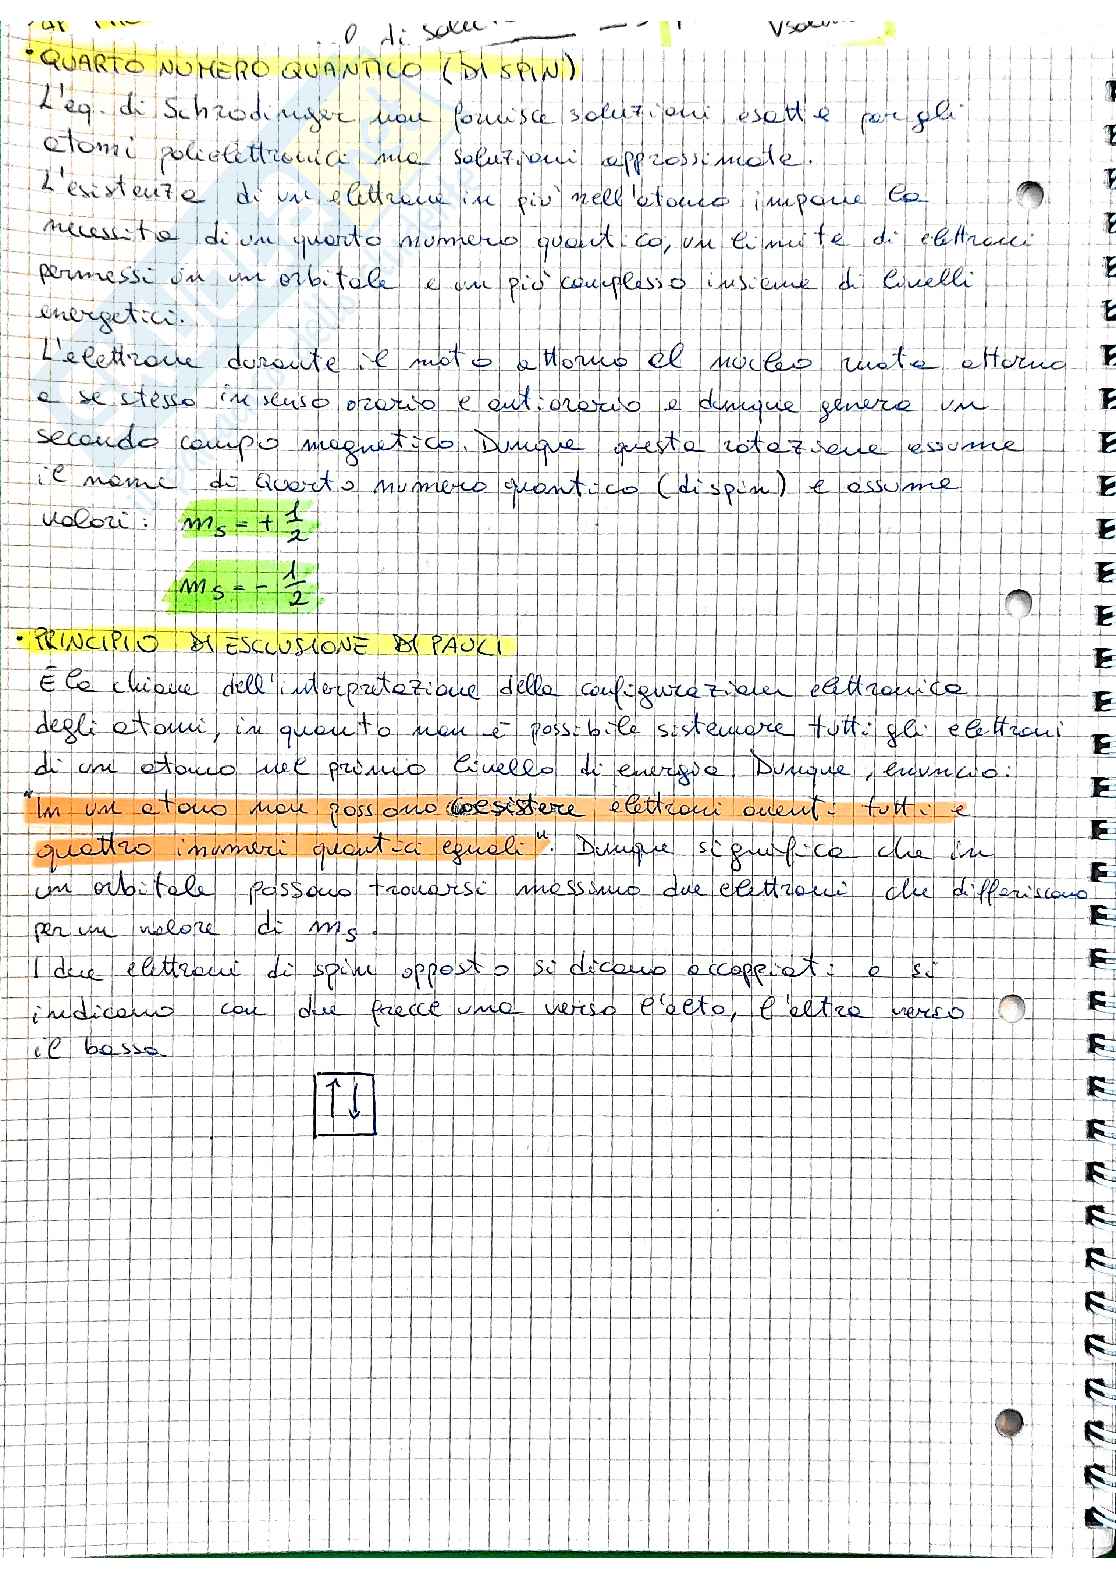 di solu
• QUARTO NUMERO QUANTICO (DI SPIN)
L'eq. di Schrodinger non fornisce soluzioni esatte per gli
atomi polielettronici ma soluzioni approssimate.
L'esistenza di un elettrone in più nell'atomo impone la
necessità di un quarto numero quantico, un limite di elettroni
permessi in un orbitale e un più complesso insieme di livelli
energetici.
L'elettrone durante il moto attorno al nucleo ruota attorno
a se stesso in senso orario e antiorario e dunque genera un
secondo campo magnetico. Dunque questa rotazione assume
il nome di Quarto numero quantico (di spin) e assume
valori: ms = + 1/2
ms = - 1/2
• PRINCIPIO DI ESCLUSIONE DI PAULI
È la chiave dell'interpretazione della configurazione elettronica
degli atomi, in quanto non è possibile sistemare tutti gli elettroni
di un atomo nel primo livello di energia. Dunque, enuncio:
"In un atomo non possono coesistere elettroni aventi tutti e
quattro i numeri quantici eguali". Dunque significa che in
un orbitale possono trovarsi massimo due elettroni che differiscono
per un valore di ms.
I due elettroni di spin opposto si dicono accoppiati e si
indicano con due frecce una verso l'alto, l'altra verso
il basso.
↑↓